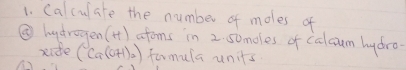 1. Calculate the number of moles of
ⓐ hydrogen (H) atoms in 2.50moles of calcium hydro-
xide (Ca(OH)₂) formula units.